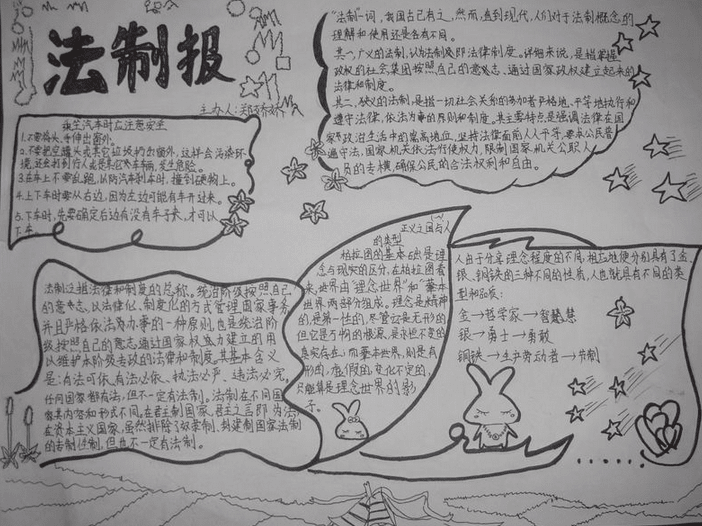 法制报
主办人:郑娇娇
乘坐汽车时应注意安全
1.不要将头、手伸出窗外。
2.不要把空罐头或其它垃圾扔出窗外,这样会污染环
境,还会打到行人或是其它来车辆,发生危险。
3.在车上不要乱跑,以防汽车刹车时,撞到硬物上。
4.上下车时要从右边,因为左边可能有车开过来。
5.下车时,先要确定后边有没有车子来,才可以
下车。
“法制”一词,我国古已有之。然而,直到现代,人们对于法制概念的
理解和使用还是各有不同。
其一,广义的法制,认为法制即法律制度。详细来说,是指掌握
政权的社会集团按照自己的意志,通过国家政权建立起来的
法律和制度。
其二,狭义的法制,是指一切社会关系的参加者严格地、平等地执行和
遵守法律,依法办事的原则和制度。其主要特点是强调法律在国
家政治生活中的崇高地位,坚持法律面前人人平等,要求公民普
遍守法,国家机关依法行使权力,限制国家机关公职人
员的专横,确保公民的合法权利和自由。
法制泛指法律和制度的总称。统治阶级按照自己
的意志,以法律化、制度化的方式管理国家事务,
并且严格依法办事的一种原则,也是统治阶
级按照自己的意志通过国家权力建立的用
以维护本阶级专政的法律和制度。其基本含义
是:有法可依、有法必依、执法必严、违法必究。
任何国家都有法,但不一定有法制。法制在不同国
家其内容和形式不同。在君主制国家,君主之言即为法,
在资本主义国家,虽然排除了奴隶制、封建制国家法制
的专制性制,但也不一定有法制。
正义之国与人
的类型
柏拉图的基本区分是理
念与现实的区分,在柏拉图看
来,世界由“理念世界”和“基本
世界”两部分组成。理念是精神
的,是第一性的,尽管它是无形的
但它是万物的根源,是永恒不变的
真实存在;而基本世界,则是有
形的,虚假的,变化不定的,
只能算是理念世界的影
子。
人由于分享理念程度的不同,相应地便分别具有了金、
银、铜铁的三种不同的性质,人也就具有不同的类
型和品质:
金→哲学家→智慧
银→勇士→勇敢
铜铁→生产劳动者→节制